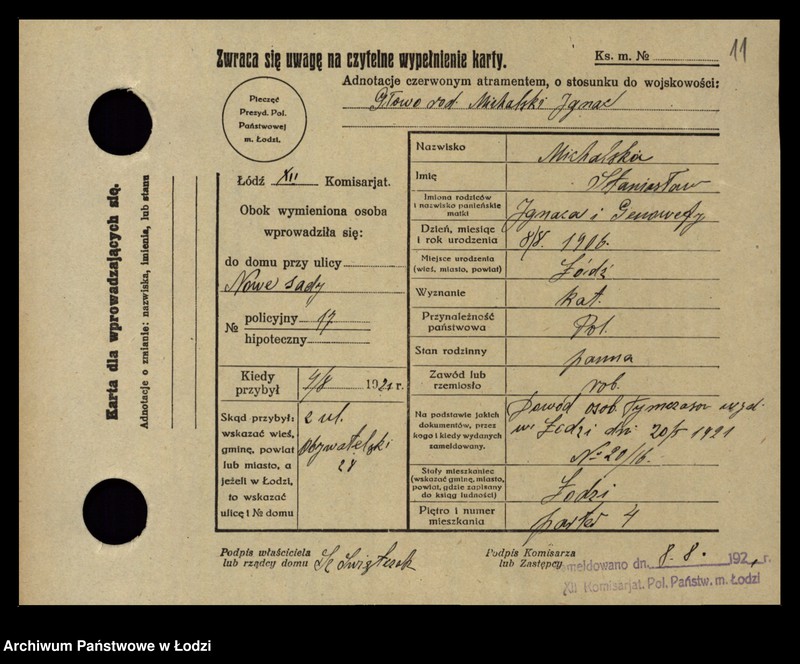 Zwraca się uwagę na czytelne wypełnienie karty.
Ks. m. №
11
Adnotacje czerwonym atramentem, o stosunku do wojskowości:
Głowo rod. Michalski Ignac
Pieczęć
Prezyd. Pol.
Państwowej
m. Łodzi.
Karta dla wprowadzających się.
Adnotacje o zmianie: nazwiska, imienia, lub stanu
Łódź XII Komisarjat.
Obok wymieniona osoba
wprowadziła się:
do domu przy ulicy
Nowe sady
№ policyjny 17
hipoteczny
Kiedy przybył 4/8 1921 r.
Skąd przybył:
wskazać wieś,
gminę, powiat
lub miasto, a
jeżeli w Łodzi,
to wskazać
ulicę i № domu
z ul.
Obywatelski
27
Nazwisko Michalska
Imię Stanisław
Imiona rodziców
i nazwisko panieńskie
matki
Ignaca i Genowefy
Dzień, miesiąc
i rok urodzenia
8/8. 1906.
Miejsce urodzenia
(wieś, miasto, powiat)
Łódź
Wyznanie kat.
Przynależność
państwowa
Pol.
Stan rodzinny panna
Zawód lub
rzemiosło
rob.
Na podstawie jakich
dokumentów, przez
kogo i kiedy wydanych
zameldowany.
Dowód osob. Tymczasow wyd.
w Łodzi dn. 20/5 1921
№ 20/16.
Stały mieszkaniec
(wskazać gminę, miasto,
powiat, gdzie zapisany
do ksiąg ludności)
Łodzi
Piętro i numer
mieszkania
parter 4
Podpis właściciela
lub rządcy domu
Podpis Komisarza
lub Zastępcy
Zameldowano dn. 8. 8. 1921 r.
XII Komisarjat. Pol. Państw. m. Łodzi
Archiwum Państwowe w Łodzi